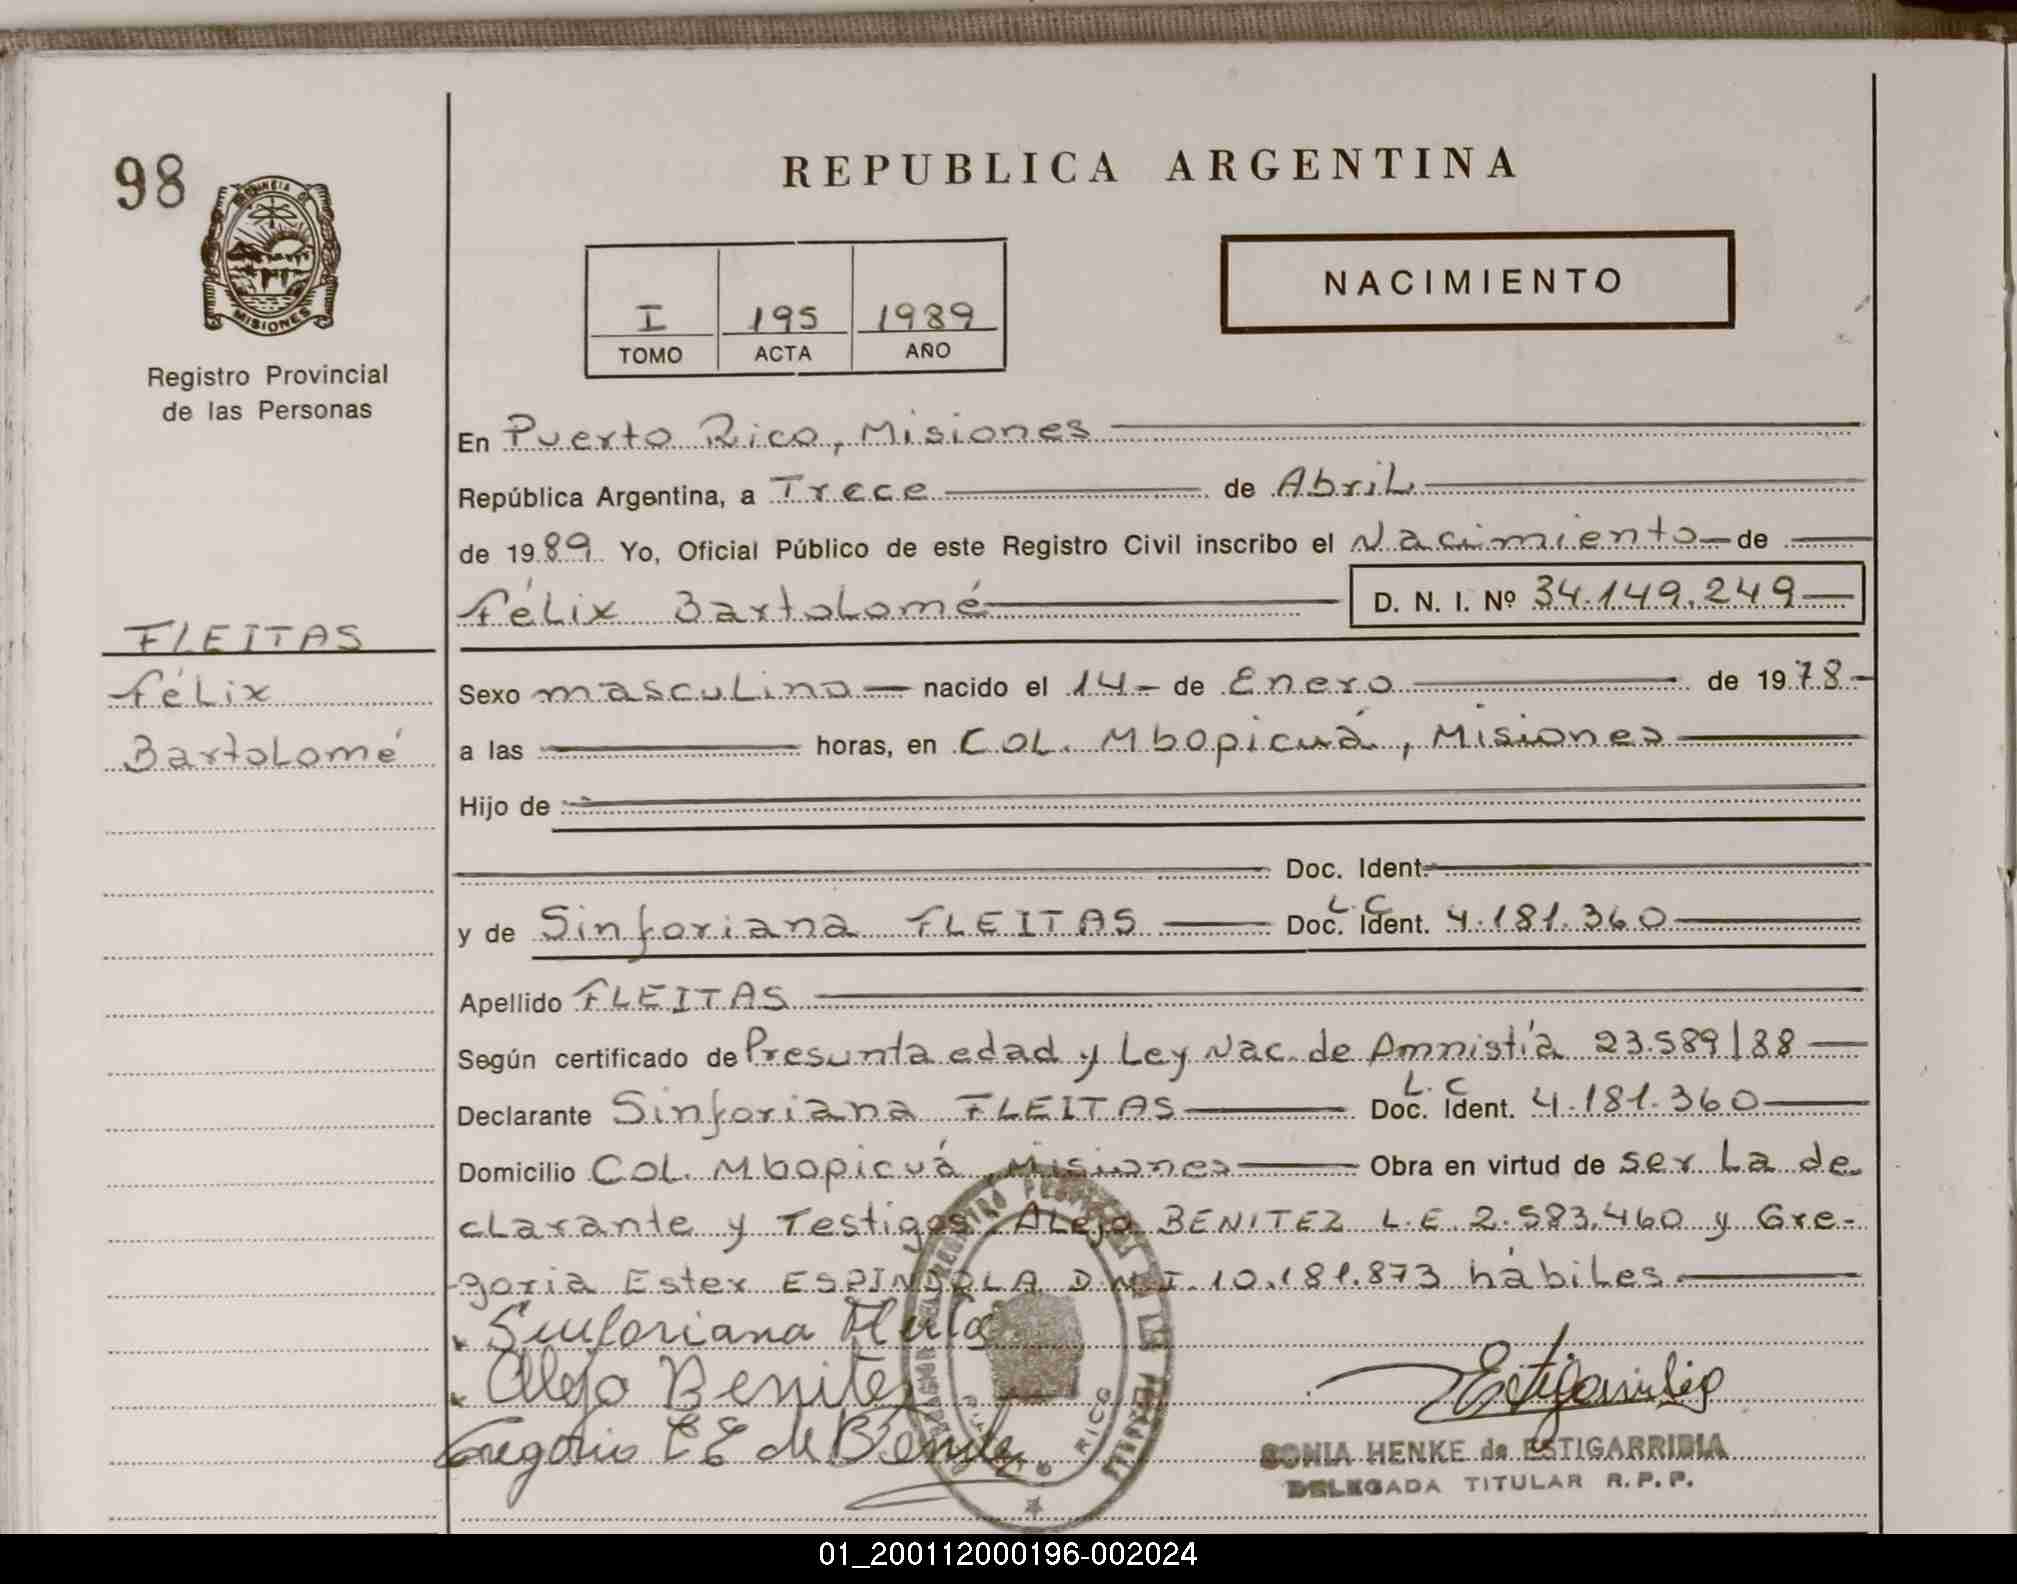 98
PROVINCIA DE
MISIONES
Registro Provincial
de las Personas
REPUBLICA ARGENTINA
NACIMIENTO
I 195 1989
TOMO ACTA AÑO
En Puerto Rico, Misiones
República Argentina, a Trece de Abril
de 1989 Yo, Oficial Público de este Registro Civil inscribo el Nacimiento de
Félix Bartolomé D. N. I. Nº 34.149.249
FLEITAS
Félix
Bartolomé
Sexo masculino nacido el 14 de Enero de 1978
a las horas, en COL. Mbopicuá, Misiones
Hijo de
Doc. Ident.
y de Sinforiana FLEITAS Doc. Ident. L.C 4.181.360
Apellido FLEITAS
Según certificado de Presunta edad y Ley Nac. de Amnistía 23.589/88
Declarante Sinforiana FLEITAS Doc. Ident. L.C 4.181.360
Domicilio COL. Mbopicuá, Misiones Obra en virtud de ser la de-
clarante y Testigos Alejo BENITEZ L.E. 2.583.460 y Gre-
goria Ester ESPINDOLA D.N.I. 10.181.873 hábiles
Sinforiana Fleitas
Alejo Benitez
Gregoria E E de Benitez
Estigarribia
SONIA HENKE de ESTIGARRIBIA
DELEGADA TITULAR R.P.P.
RICO
01_200112000196-002024